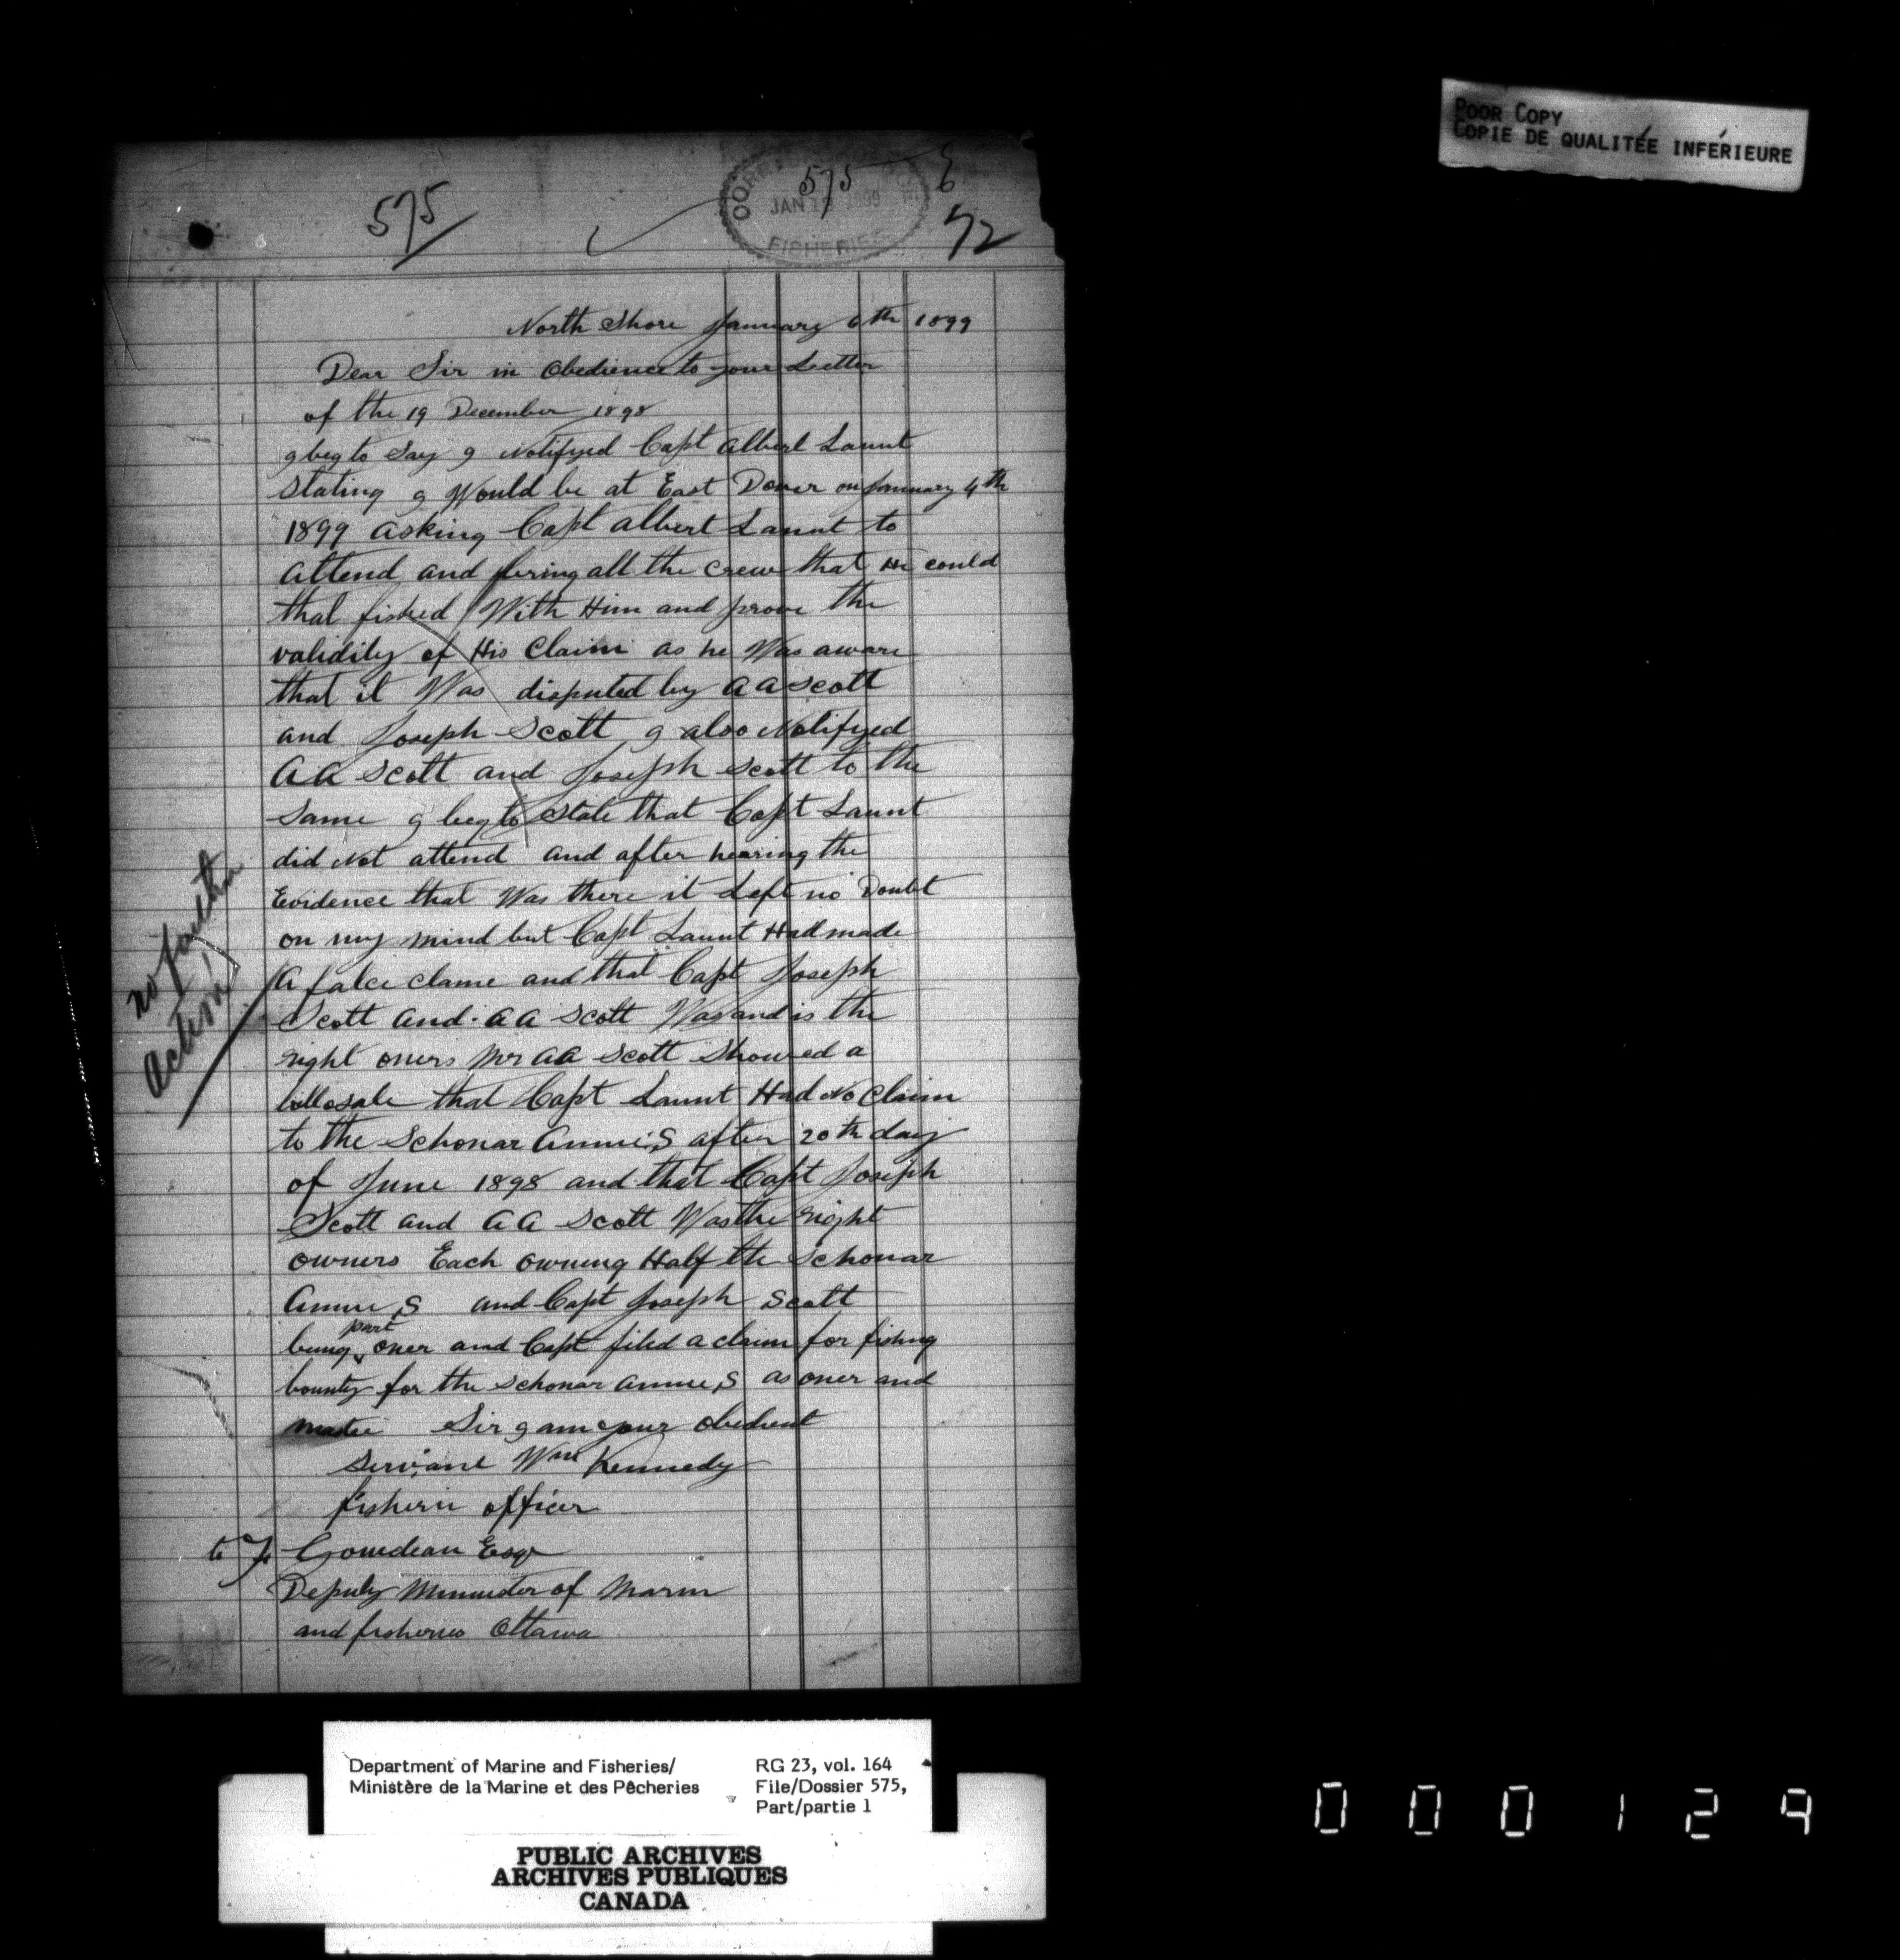 POOR COPY
COPIE DE QUALITÉE INFÉRIEURE
575
575
6
JAN 18 1899
FISHERIES
72
North Shore January 6th 1899
Dear Sir in Obedience to your Letter
of the 19 December 1898
I beg to Say I Notifyed Capt Albert Launt
Stating I Would be at East Dover on January 4th
1899 asking Capt Albert Launt to
attend and bring all the crew that He could
that fished With Him and prove the
validity of His Claim as he Was aware
that it Was disputed by A A Scott
and Joseph Scott I also Notifyed
A A Scott and Joseph Scott to the
Same I beg to State that Capt Launt
did Not attend and after hearing the
Evidence that Was there it Left no Doubt
on my mind but Capt Launt Had made
A falce clame and that Capt Joseph
Scott and A A Scott Was and is the
right oners Mr A A Scott Showed a
billosale that Capt Launt Had No Claim
to the Schonar Annie,S after 20th day
of June 1898 and that Capt Joseph
Scott and A A Scott Was the right
owners Each owning Half the Schonar
Annie,S and Capt Joseph Scott
being part oner and Capt filed a claim for fishing
bounty for the Schonar Annie,S as oner and
master Sir I am your obedient
Servant Wm Kennedy
fisherie officer
to F Gourdeau Esqr
Deputy Minister of Marin
and fisheries Ottawa
no further
action
Department of Marine and Fisheries/
Ministère de la Marine et des Pêcheries
RG 23, vol. 164
File/Dossier 575,
Part/partie 1
PUBLIC ARCHIVES
ARCHIVES PUBLIQUES
CANADA
000129